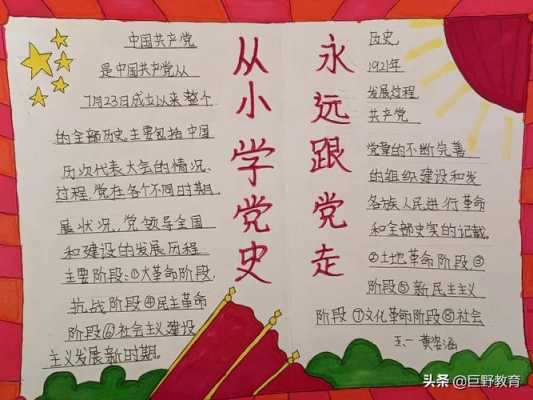 从小学党史
永远跟党走
中国共产党
历史
是中国共产党从
1921年
7月23日成立以来整个
发展过程
的全部历史,主要包括中国
共产党
历次代表大会的情况、
党章的不断完善
过程,党在各个不同时期
的组织建设和发
展状况、党领导全国
各族人民进行革命
和建设的发展历程
和全部史实的记载。
主要阶段:①大革命阶段,
②土地革命阶段③
抗战阶段④民主革命
阶段⑤新民主主义
阶段⑥社会主义建设
阶段⑦文化革命阶段⑧社会
主义发展新时期。
五一 黄
头条 @巨野教育